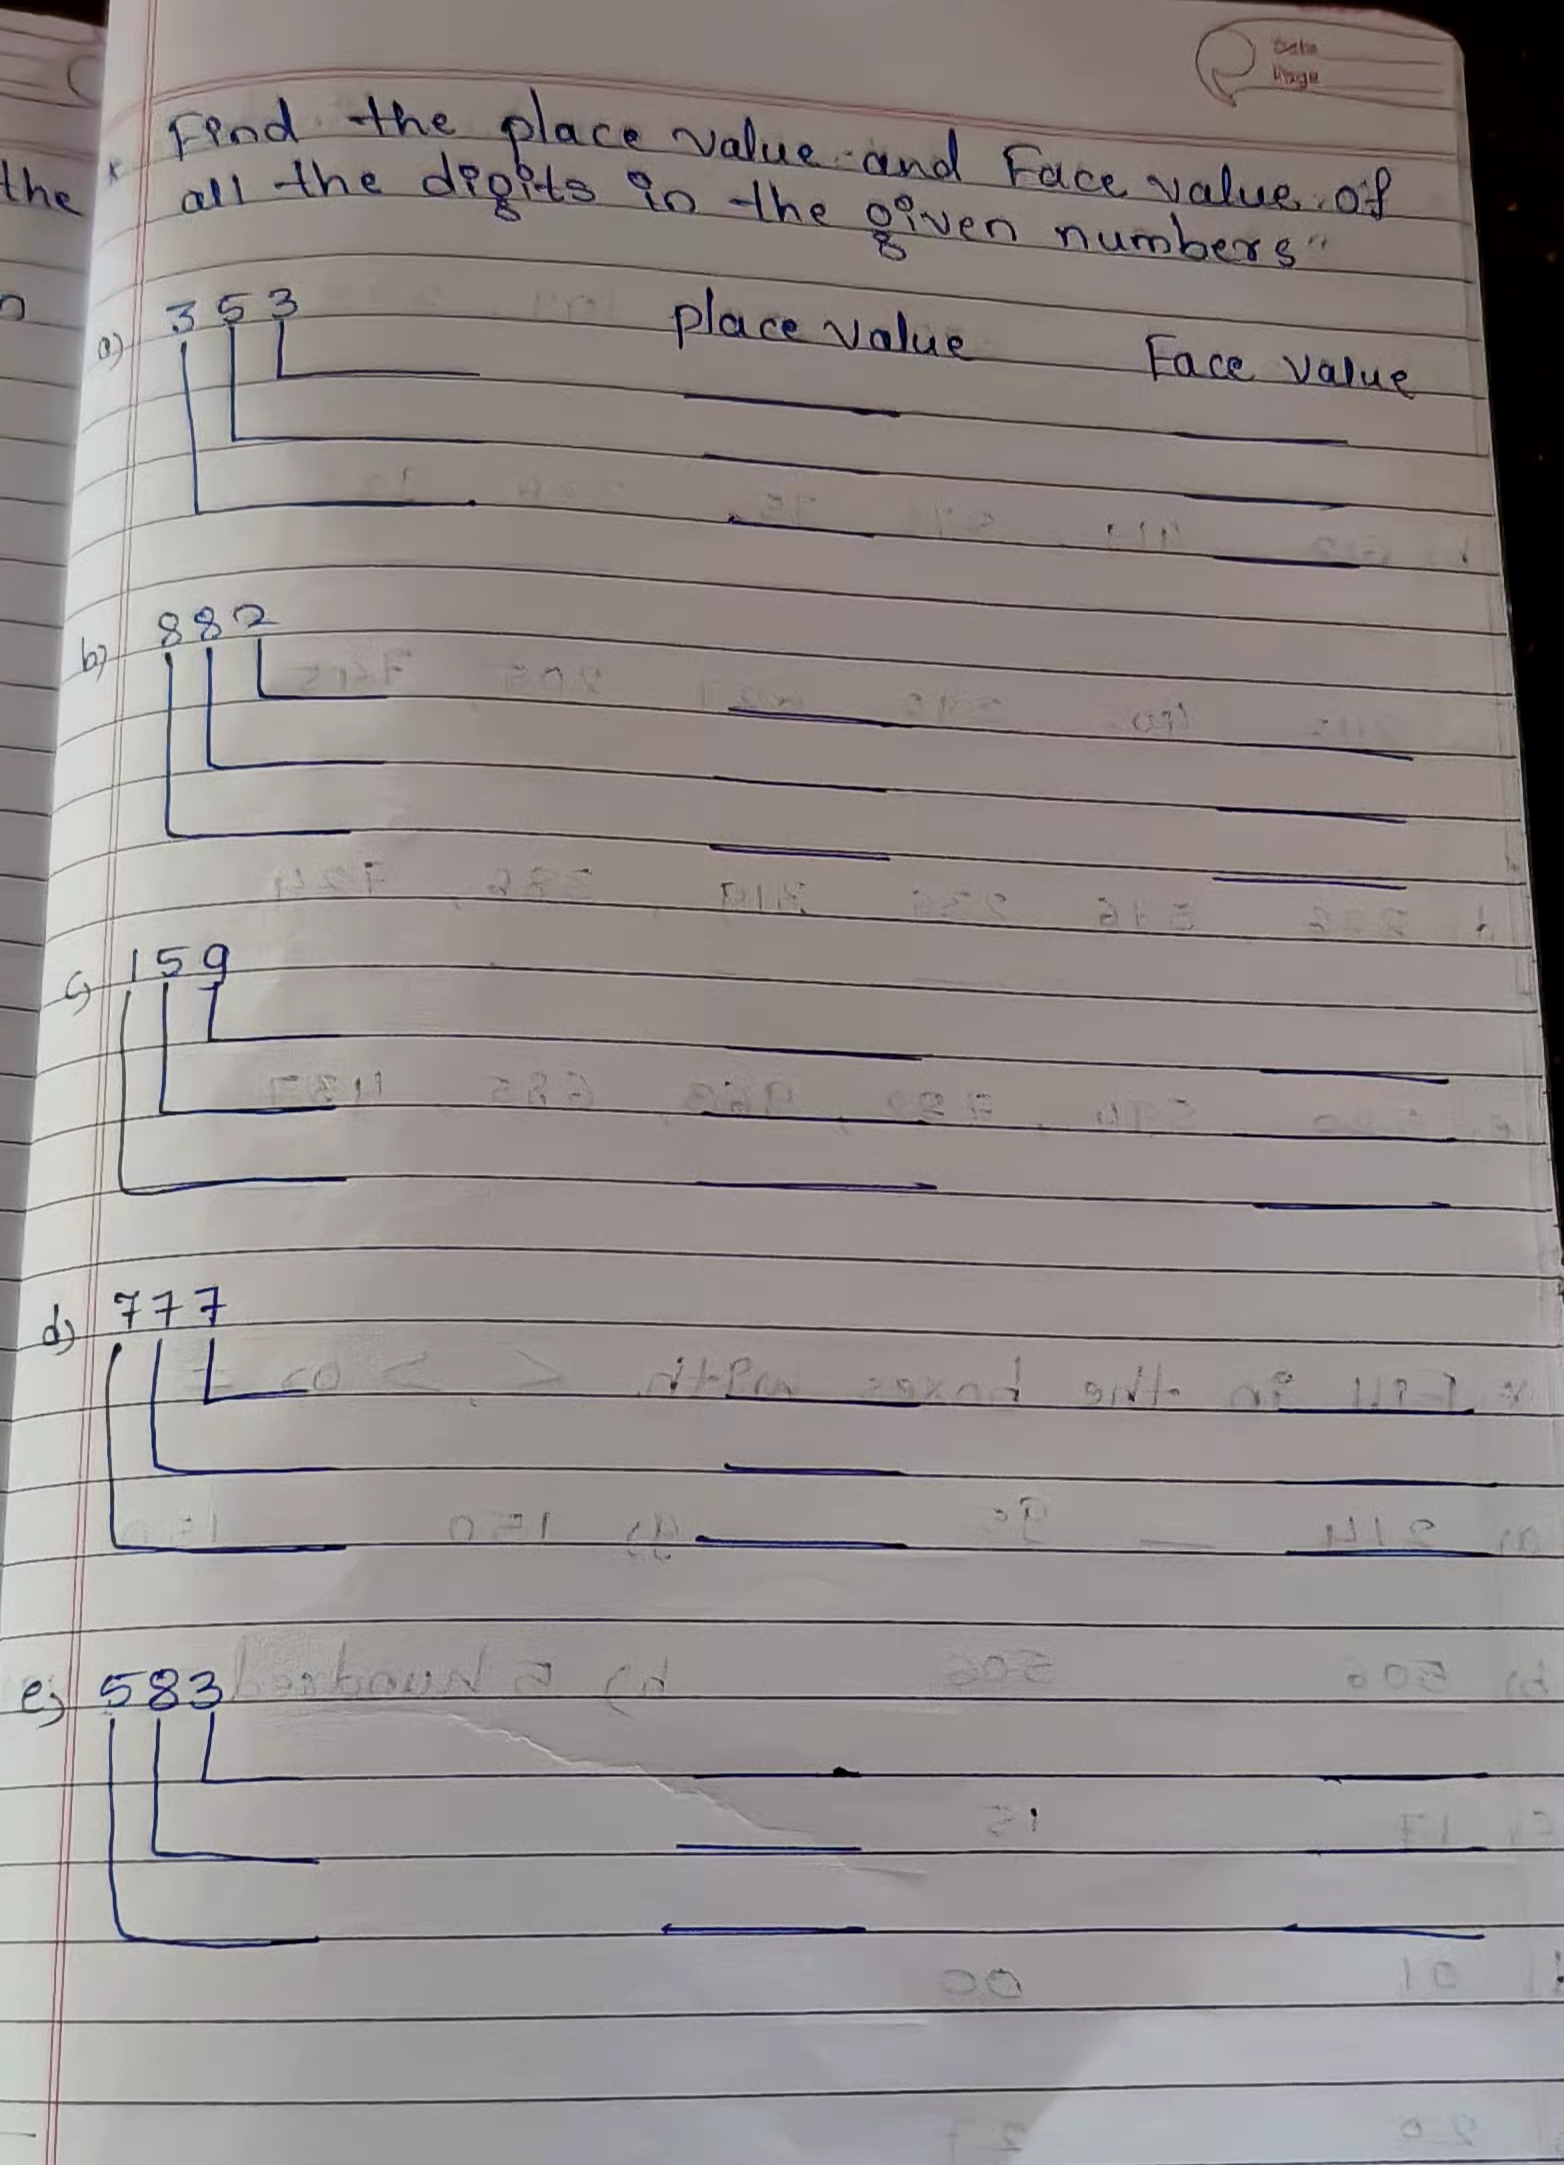 Date
Page
* Find the place value and Face value of
all the digits in the given numbers"
the
a) 353 place value Face value
b) 882
c) 159
d) 777
e) 583